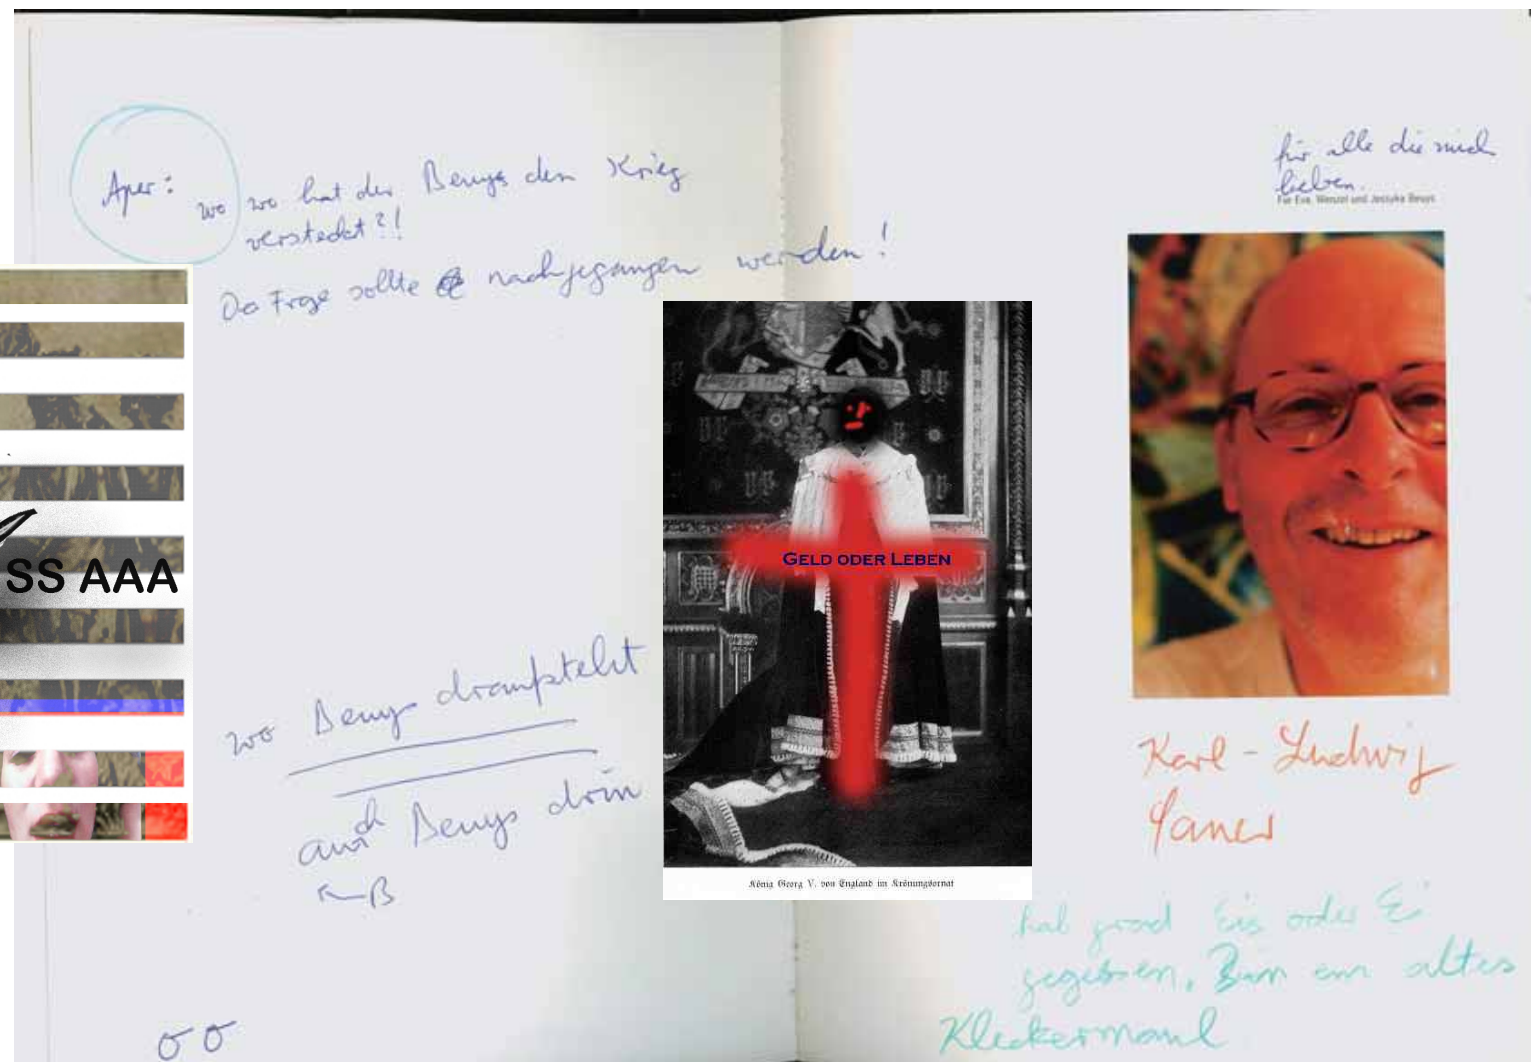 Aper:
wo wo hat der Beuys den Krieg
versteckt?!
Da Frage sollte nachgegangen werden!
SS AAA
wo Beuys draufsteht
auch Beuys drin
GELD ODER LEBEN
König Georg V. von England im Krönungsornat
für alle die mich
lieben.
Für Eva, Wenzel und Jessyka Beuys
Karl-Ludwig
hab grad Eis oder Ei
gegessen, Bin ein altes
Kleckermaul